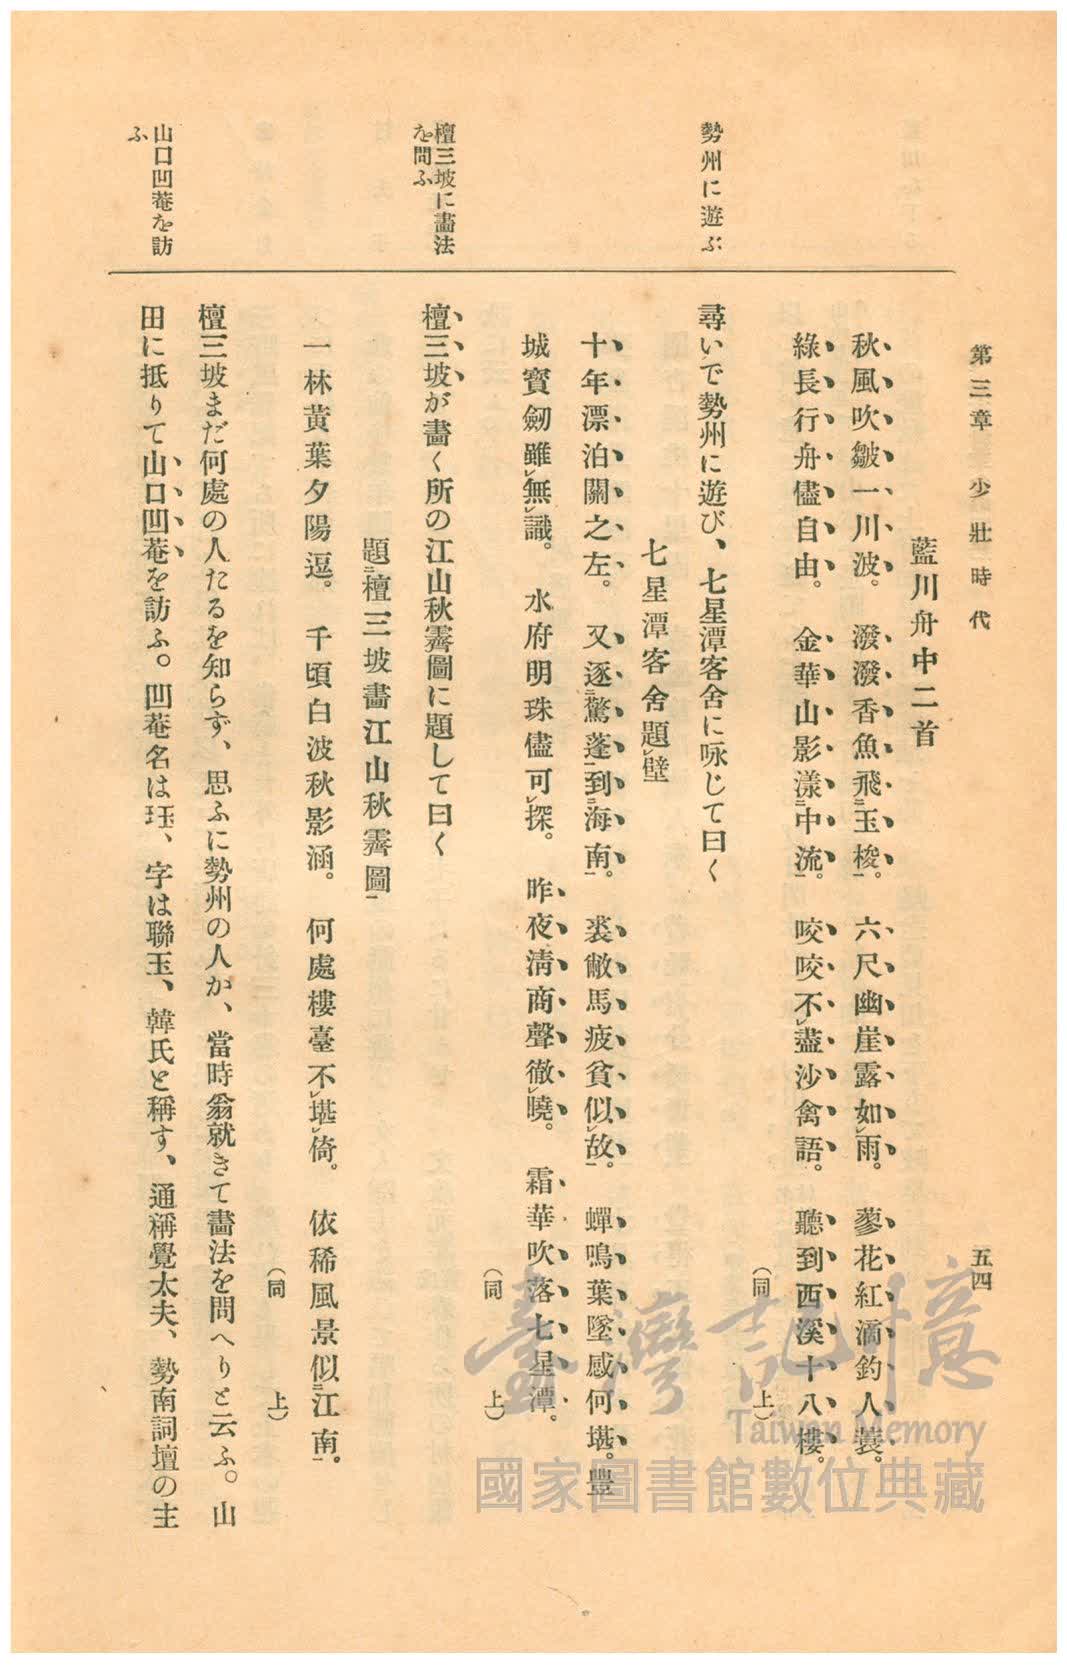 第三章 少壯時代
五四
藍川舟中二首
秋風吹皺一川波。潑潑香魚飛二玉梭一。六尺幽崖露如レ雨。蓼花紅滴釣人蓑。
綠長行舟儘自由。金華山影漾二中流一。咬咬不レ盡沙禽語。聽到西溪十八樓。
（同 上）
勢州に遊ぶ
尋いで勢州に遊び、七星潭客舍に咏じて曰く
七星潭客舍題レ壁
十年漂泊關之左。又逐二驚蓬一到二海南一。裘敝馬疲貧似レ故。蟬鳴葉墜感何堪。豐
城寶劒雖レ無レ識。水府明珠儘可レ探。昨夜淸商聲徹レ曉。霜華吹落七星潭。
（同 上）
檀三坡に畵法
を問ふ
檀三坡が畵く所の江山秋霽圖に題して曰く
題二檀三坡畵江山秋霽圖一
一林黃葉夕陽逗。千頃白波秋影涵。何處樓臺不レ堪レ倚。依稀風景似二江南一。
（同 上）
檀三坡まだ何處の人たるを知らず、思ふに勢州の人か、當時翁就きて畵法を問へりと云ふ。山
山口凹菴を訪
ふ
田に抵りて山口凹菴を訪ふ。凹菴名は珏、字は聯玉、韓氏と稱す、通稱覺太夫、勢南詞壇の主
臺灣記憶
Taiwan Memory
國家圖書館數位典藏